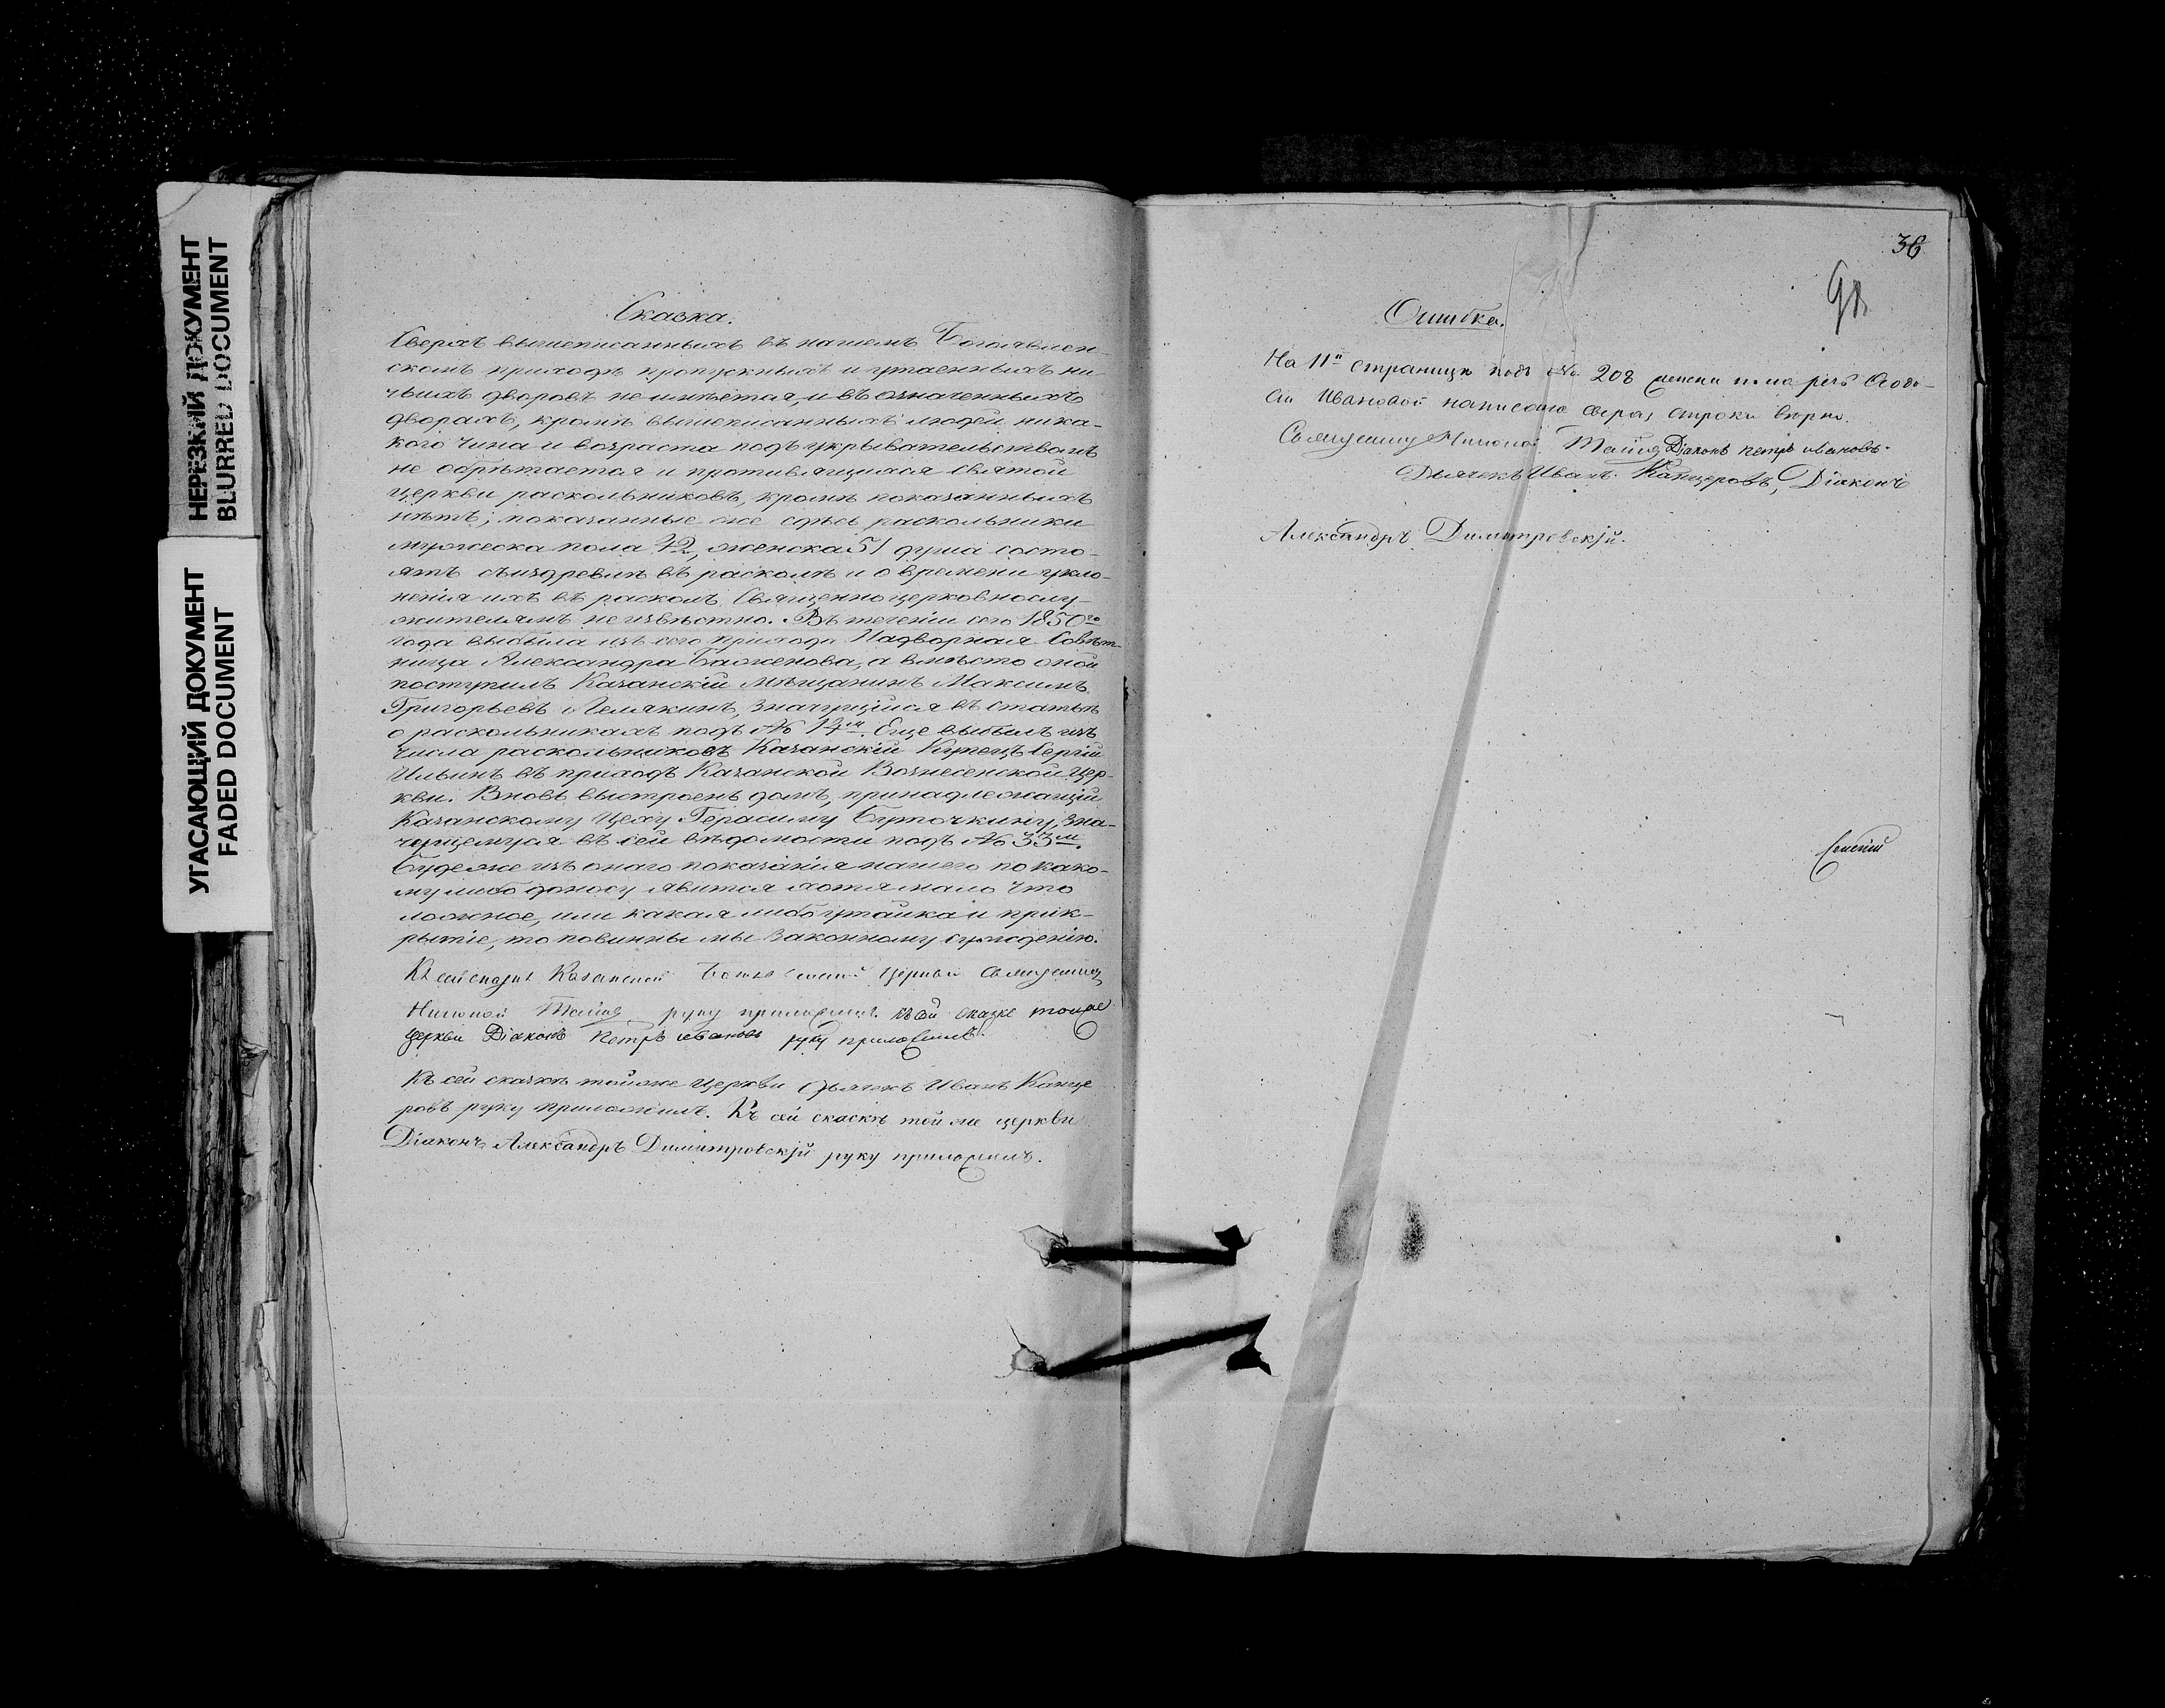 НЕРЕЗКИЙ ДОКУМЕНТ
BLURRED DOCUMENT
УГАСАЮЩИЙ ДОКУМЕНТ
FADED DOCUMENT
Сказка.
Сверхъ вышеписанныхъ въ нашемъ Богоявлен-
скомъ приходѣ пропускныхъ и утаенныхъ ни-
чьихъ дворовъ не имѣется, и въ означенныхъ
дворахъ, кромѣ вышеписанныхъ людей ника-
кого чина и возраста подъ укрывательствомъ
не обрѣтается и противящихся святой
церкви раскольниковъ, кромѣ показанныхъ
нѣтъ; показанные же здѣсь раскольники
мужеска пола 42, женска 51 душа состо-
ятъ съиздревле въ расколѣ и о времени укло-
ненія ихъ въ расколъ Священноцерковнослу-
жителямъ не извѣстно. Въ теченіи сего 1850го
года выбыла изъ сего прихода Надворная Совѣт-
ница Александра Баженова, а вмѣсто оной
поступилъ Казанскій мѣщанинъ Максимъ
Григорьевъ значущійся въ статьѣ
о раскольникахъ подъ № Еще выбылъ изъ
числа раскольниковъ Казанскій Купецъ Сергій
Ильинъ въ приходъ Казанской Вознесенской цер-
кви. Вновь выстроенъ домъ, принадлежащій
Казанскому Цеху Герасиму Буточкину, зна-
чущемуся въ сей вѣдомости подъ № 33м.
Буде же изъ онаго показанія нашего по како-
му либо доносу явится хотя мало что
ложное, или какая либо утайка и прик-
рытіе, то повинны мы законному сужденію.
Къ сей сказкѣ Казанской церкви Священникъ
руку приложилъ. Къ сей сказке тойже
церкви Діаконъ Петръ Ивановъ руку приложилъ.
Къ сей сказкѣ тойже церкви дьячекъ Иванъ Канце
ровъ руку приложилъ. Къ сей скаскѣ той же церкви
Діаконъ Александръ Димитровскій руку приложилъ.
36
Ошибка.
На 11й страницѣ подъ № 208 женска пола Ѳеодо-
Ивановой написано строки вѣрно.
Священникъ Діаконъ Петръ Ивановъ.
Дьячекъ Иванъ Канцеровъ, Діаконъ
Александръ Димитровскій.